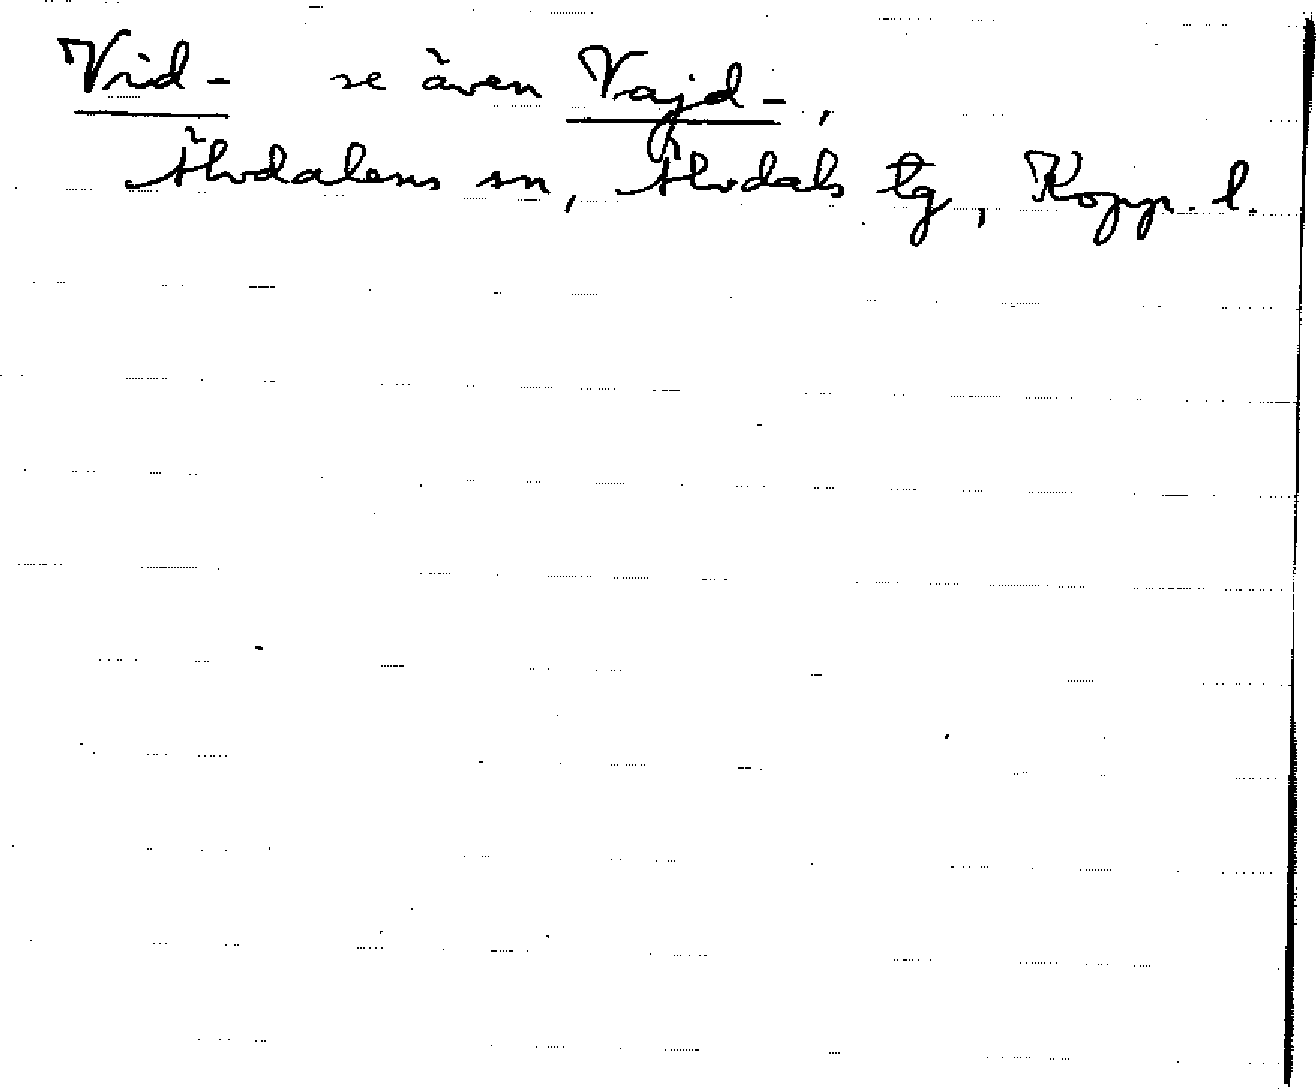 Vid- se även Vajd-,
Älvdalens sn, Älvdals tg, Kopp. l.